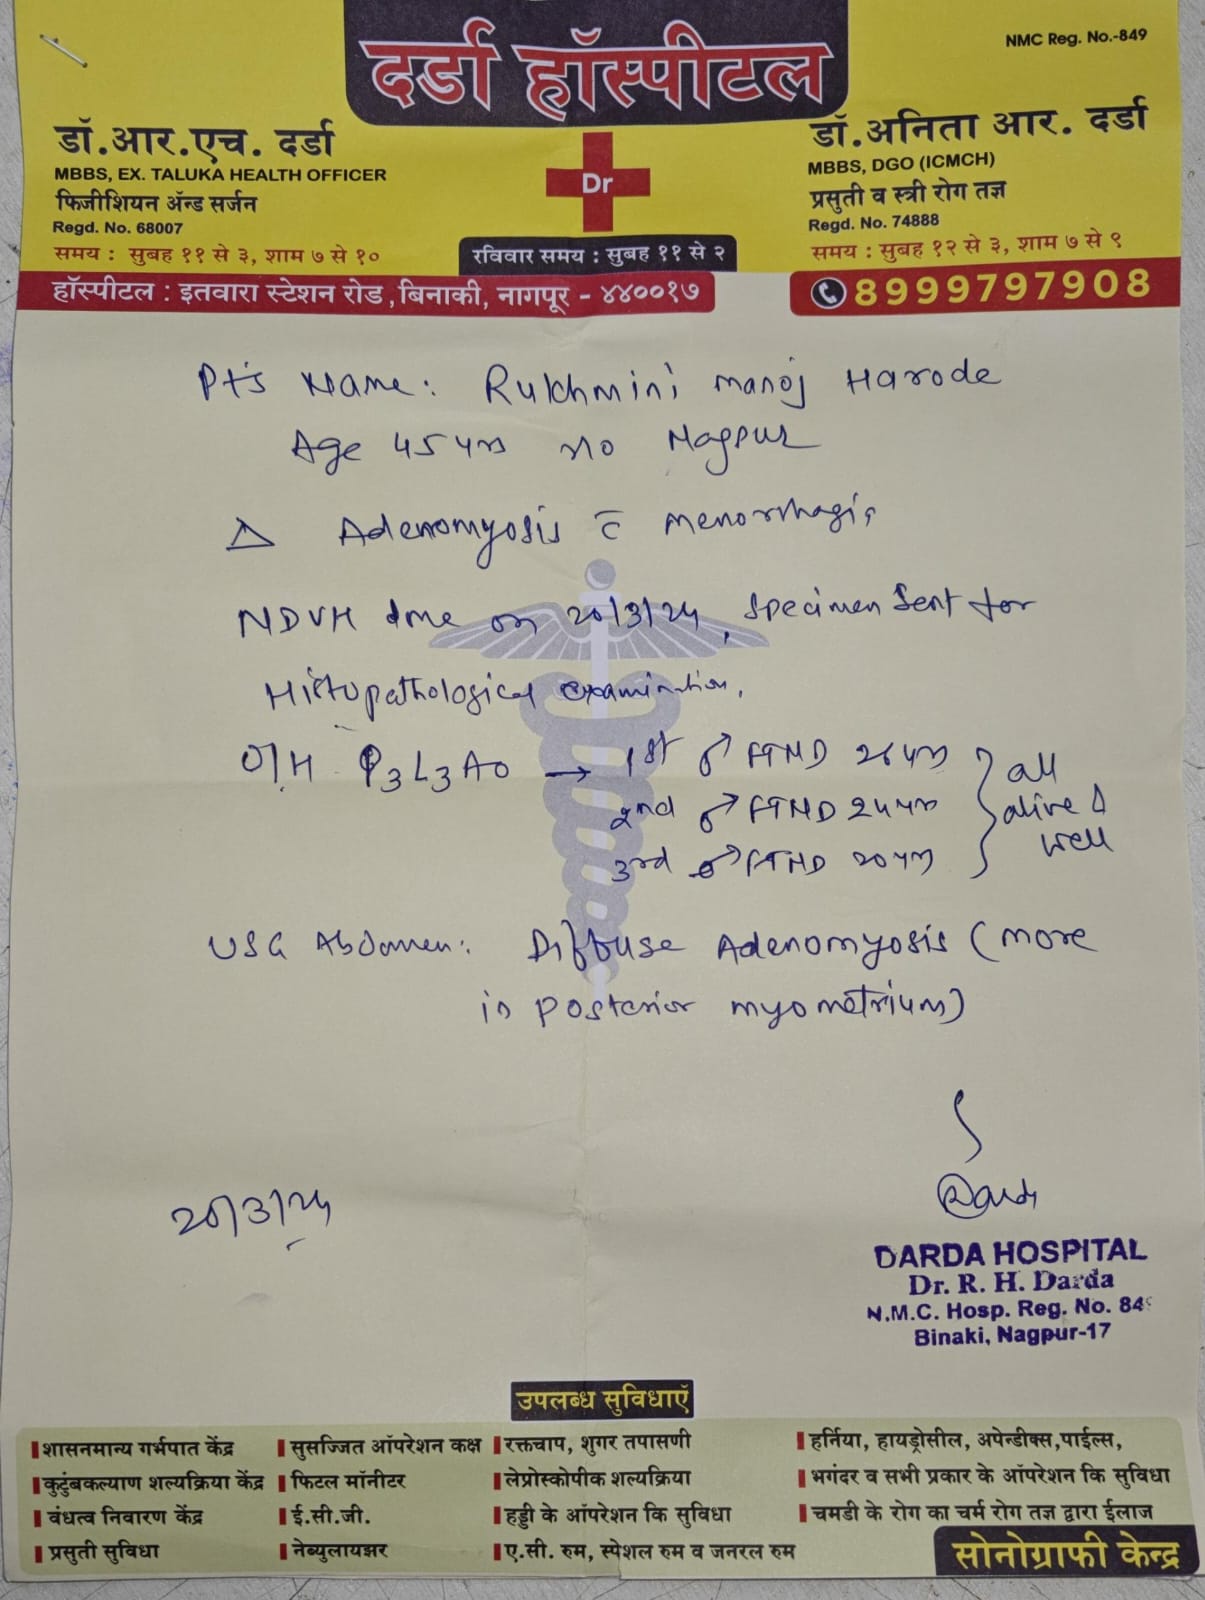 दर्डा हॉस्पीटल
NMC Reg. No.-849
डॉ.आर.एच. दर्डा
MBBS, EX. TALUKA HEALTH OFFICER
फिजीशियन ॲन्ड सर्जन
Regd. No. 68007
समय : सुबह ११ से ३, शाम ७ से १०
Dr
रविवार समय : सुबह ११ से २
डॉ.अनिता आर. दर्डा
MBBS, DGO (ICMCH)
प्रसुती व स्त्री रोग तज्ञ
Regd. No. 74888
समय : सुबह १२ से ३, शाम ७ से ९
हॉस्पीटल : इतवारा स्टेशन रोड, बिनाकी, नागपूर - ४४००१७
8999797908
Pt's Name: Rukhmini manoj Harode
Age 45 yrs r/o Nagpur
△ Adenomyosis c̄ menorrhagia
NDVH done on 20/3/24, specimen sent for
Histopathological examination.
O/H P3L3A0 → 1st ♂ FTND 26 yrs } all
2nd ♂ FTND 24 yrs } alive &
3rd ♂ FTND 20 yrs } well
USG Abdomen: Diffuse Adenomyosis (more
in posterior myometrium)
20/3/24
DARDA HOSPITAL
Dr. R. H. Darda
N.M.C. Hosp. Reg. No. 849
Binaki, Nagpur-17
उपलब्ध सुविधाएँ
शासनमान्य गर्भपात केंद्र
कुटुंबकल्याण शल्यक्रिया केंद्र
वंधत्व निवारण केंद्र
प्रसुती सुविधा
सुसज्जित ऑपरेशन कक्ष
फिटल मॉनीटर
ई.सी.जी.
नेब्युलायझर
रक्तचाप, शुगर तपासणी
लेप्रोस्कोपीक शल्यक्रिया
हड्डी के ऑपरेशन कि सुविधा
ए.सी. रुम, स्पेशल रुम व जनरल रुम
हर्निया, हायड्रोसील, अपेन्डीक्स,पाईल्स,
भगंदर व सभी प्रकार के ऑपरेशन कि सुविधा
चमडी के रोग का चर्म रोग तज्ञ द्वारा ईलाज
सोनोग्राफी केन्द्र